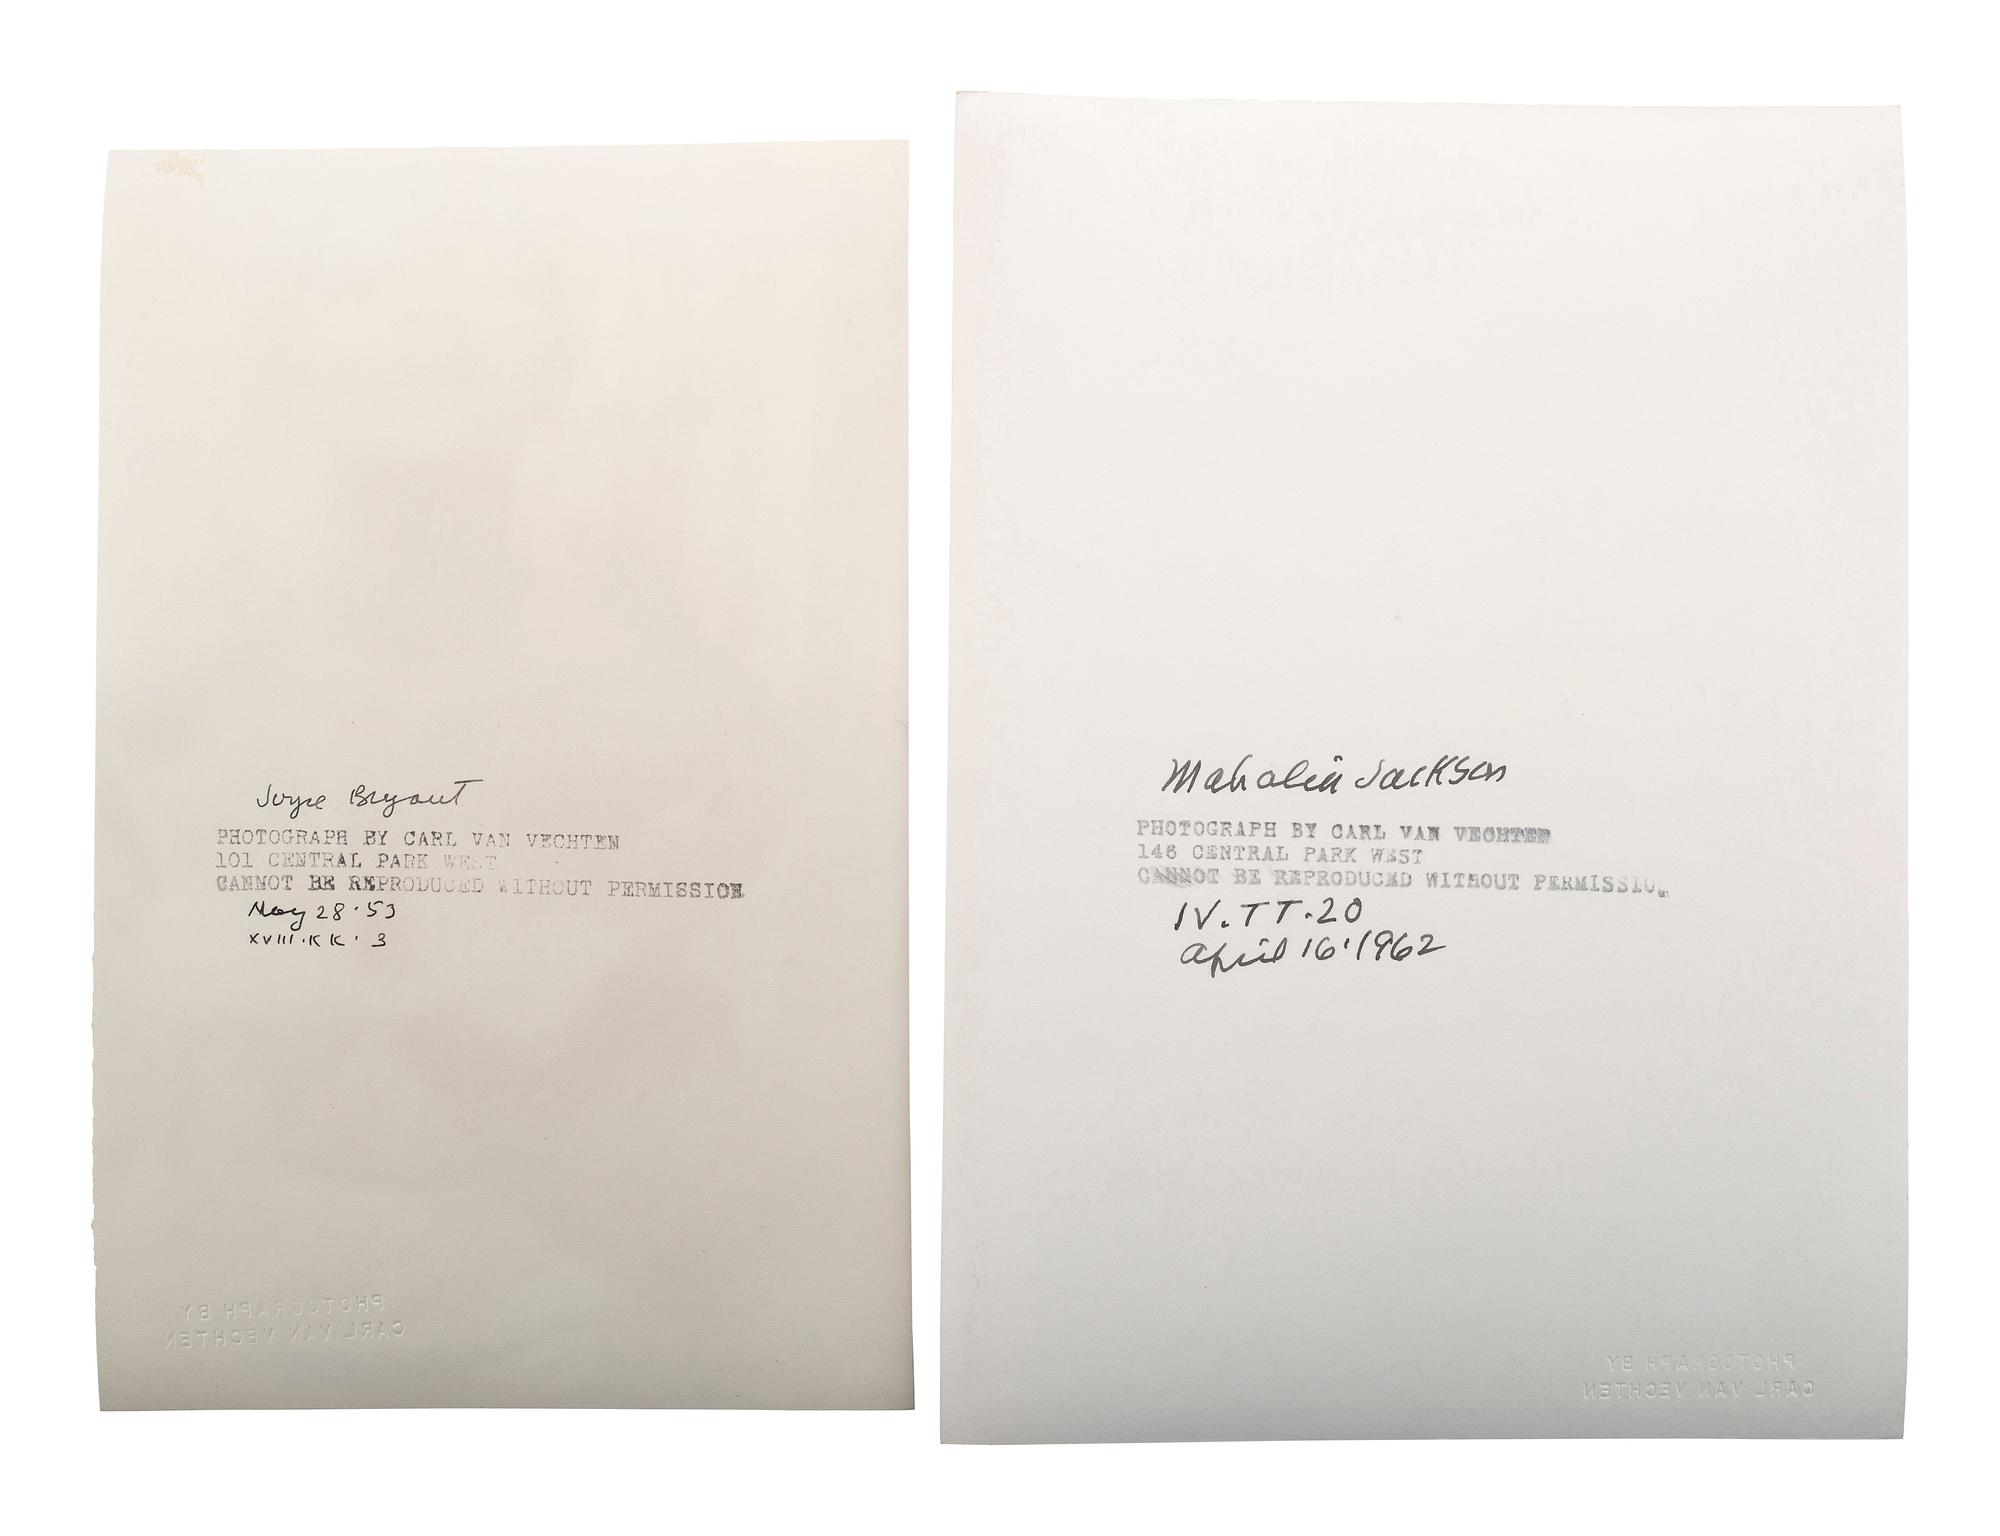 Joyce Bryant
PHOTOGRAPH BY CARL VAN VECHTEN
101 CENTRAL PARK WEST
CANNOT BE REPRODUCED WITHOUT PERMISSION
May 28·53
XVIII·KK·3
PHOTOGRAPH BY
CARL VAN VECHTEN
Mahalia Jackson
PHOTOGRAPH BY CARL VAN VECHTEN
146 CENTRAL PARK WEST
CANNOT BE REPRODUCED WITHOUT PERMISSION
IV.TT.20
April 16·1962
PHOTOGRAPH BY
CARL VAN VECHTEN